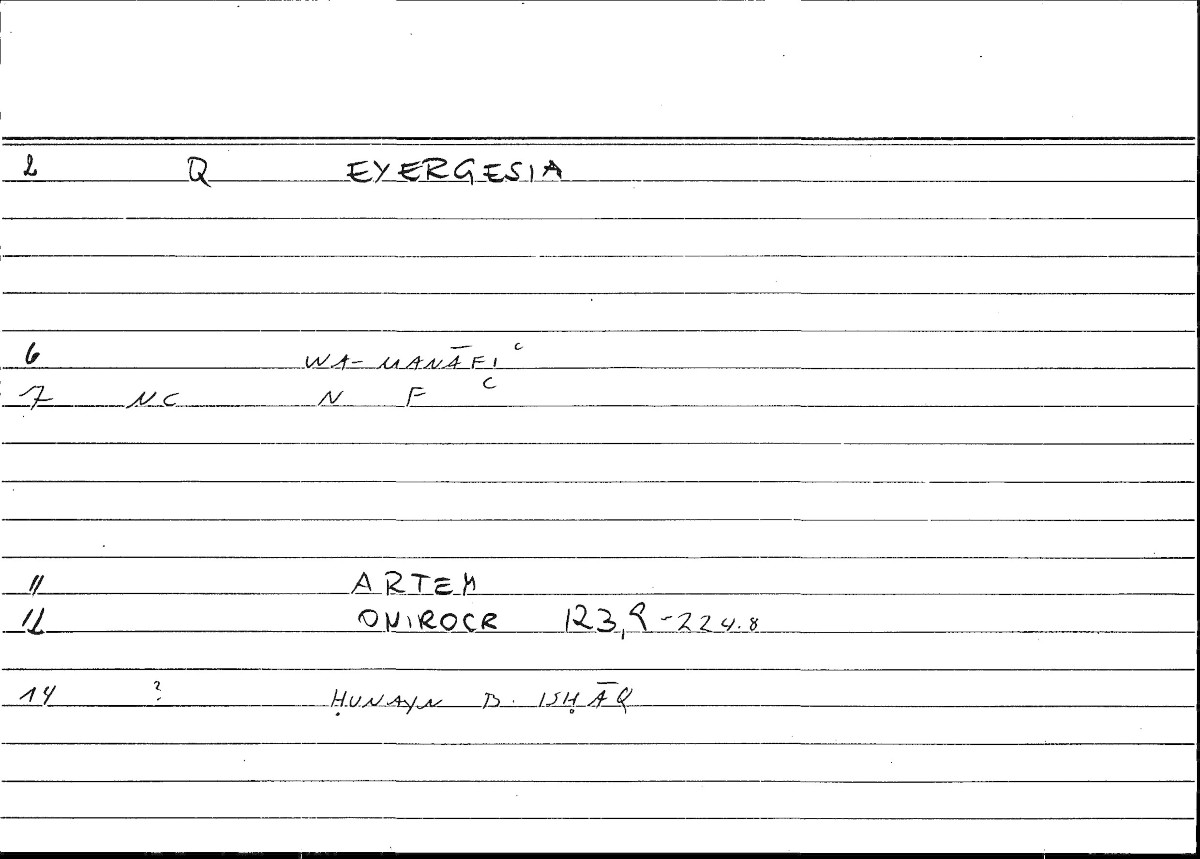 2 Q EYERGESIA
6 WA-MANĀFIᶜ
7 NC N F C
11 ARTEM
12 ONIROCR 123,9-224.8
14 ? ḤUNAYN B. ISḤĀQ